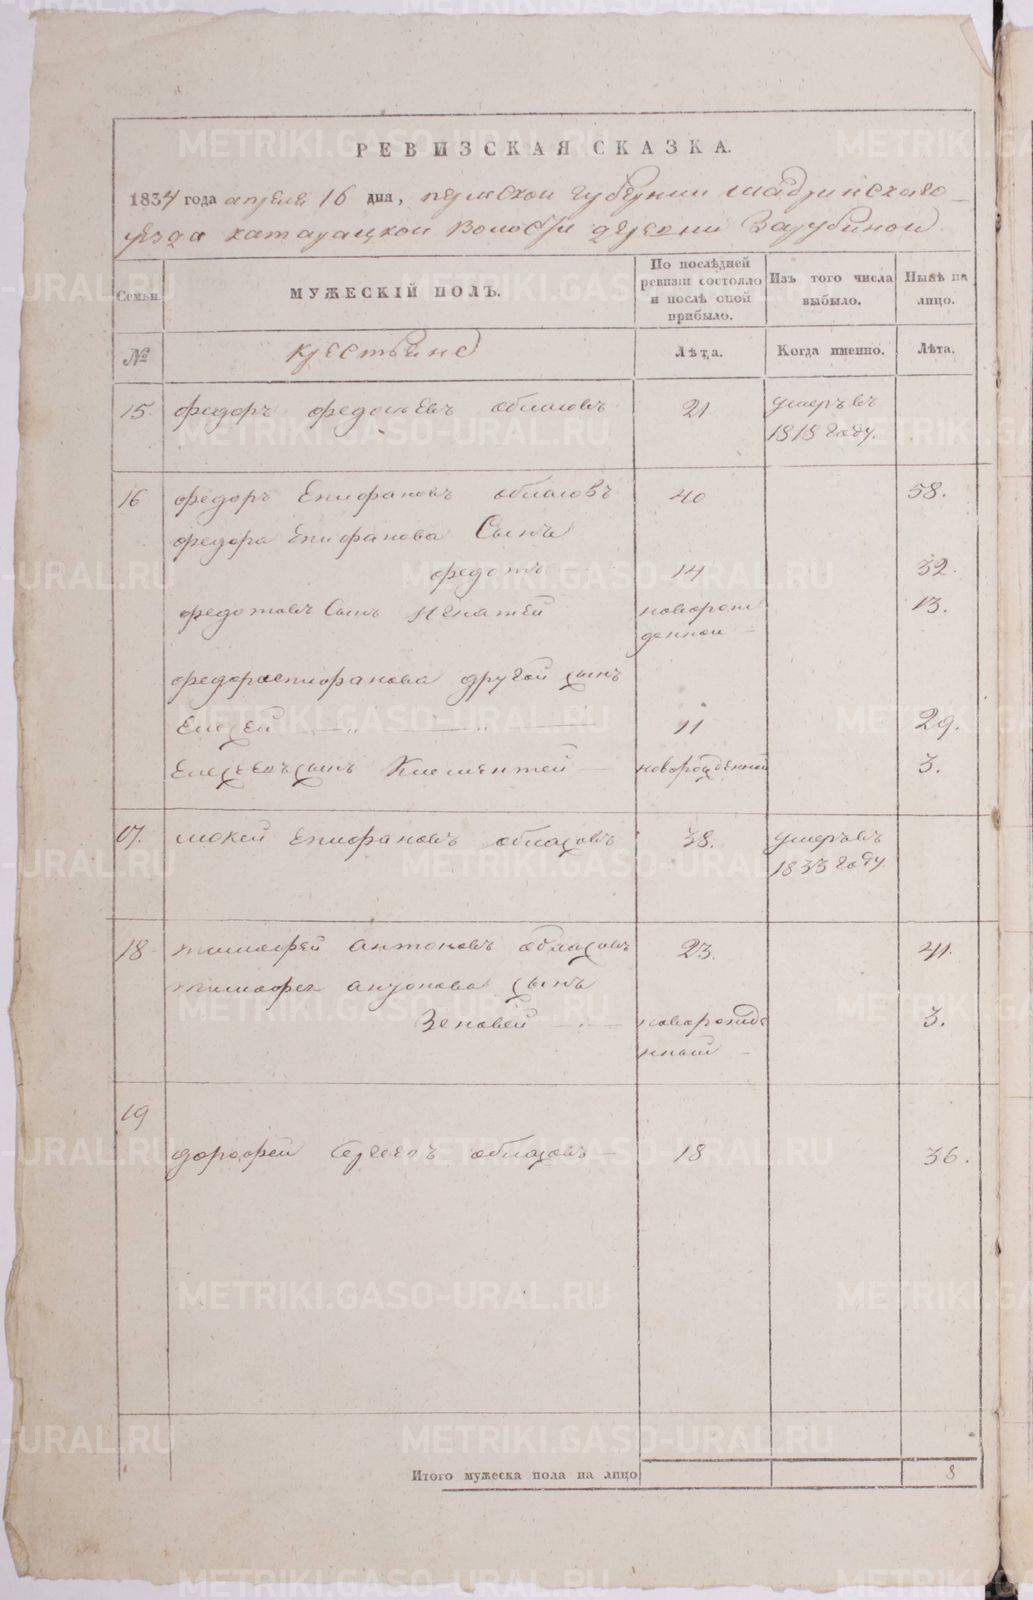 РЕВИЗСКАЯ СКАЗКА.
1834 года апреля 16 дня, пермской губернии шадринского
уезда катайцкой волости деревни Зарубиной
Семьи.
МУЖЕСКІЙ ПОЛЪ.
По послѣдней ревизіи состояло и послѣ оной прибыло.
Изъ того числа выбыло.
Нынѣ на лицо.
№
крестьяне
Лѣта.
Когда именно.
Лѣта.
15. федоръ федосѣевъ облаговъ 21 умеръ въ
1818 году.
16 федоръ Епифановъ облаговъ 40 58.
федора Епифанова Сынъ
федотъ 14 32.
федотовъ Сынъ Игнатей новорож 13.
денной
федора епифанова другой сынъ
Елесей 11 29.
Елесеевъ сынъ Климентей новорожденной 3.
17. мокей Епифановъ обласовъ 38. умеръ въ
1833 году.
18 тимофей антоновъ обласовъ 23. 41.
тимофея антонова сынъ
Зеновей новорожде 3.
нный
19
дорофей Сергеевъ обласовъ 18 36.
Итого мужеска пола на лицо 8
METRIKI.GASO-URAL.RU